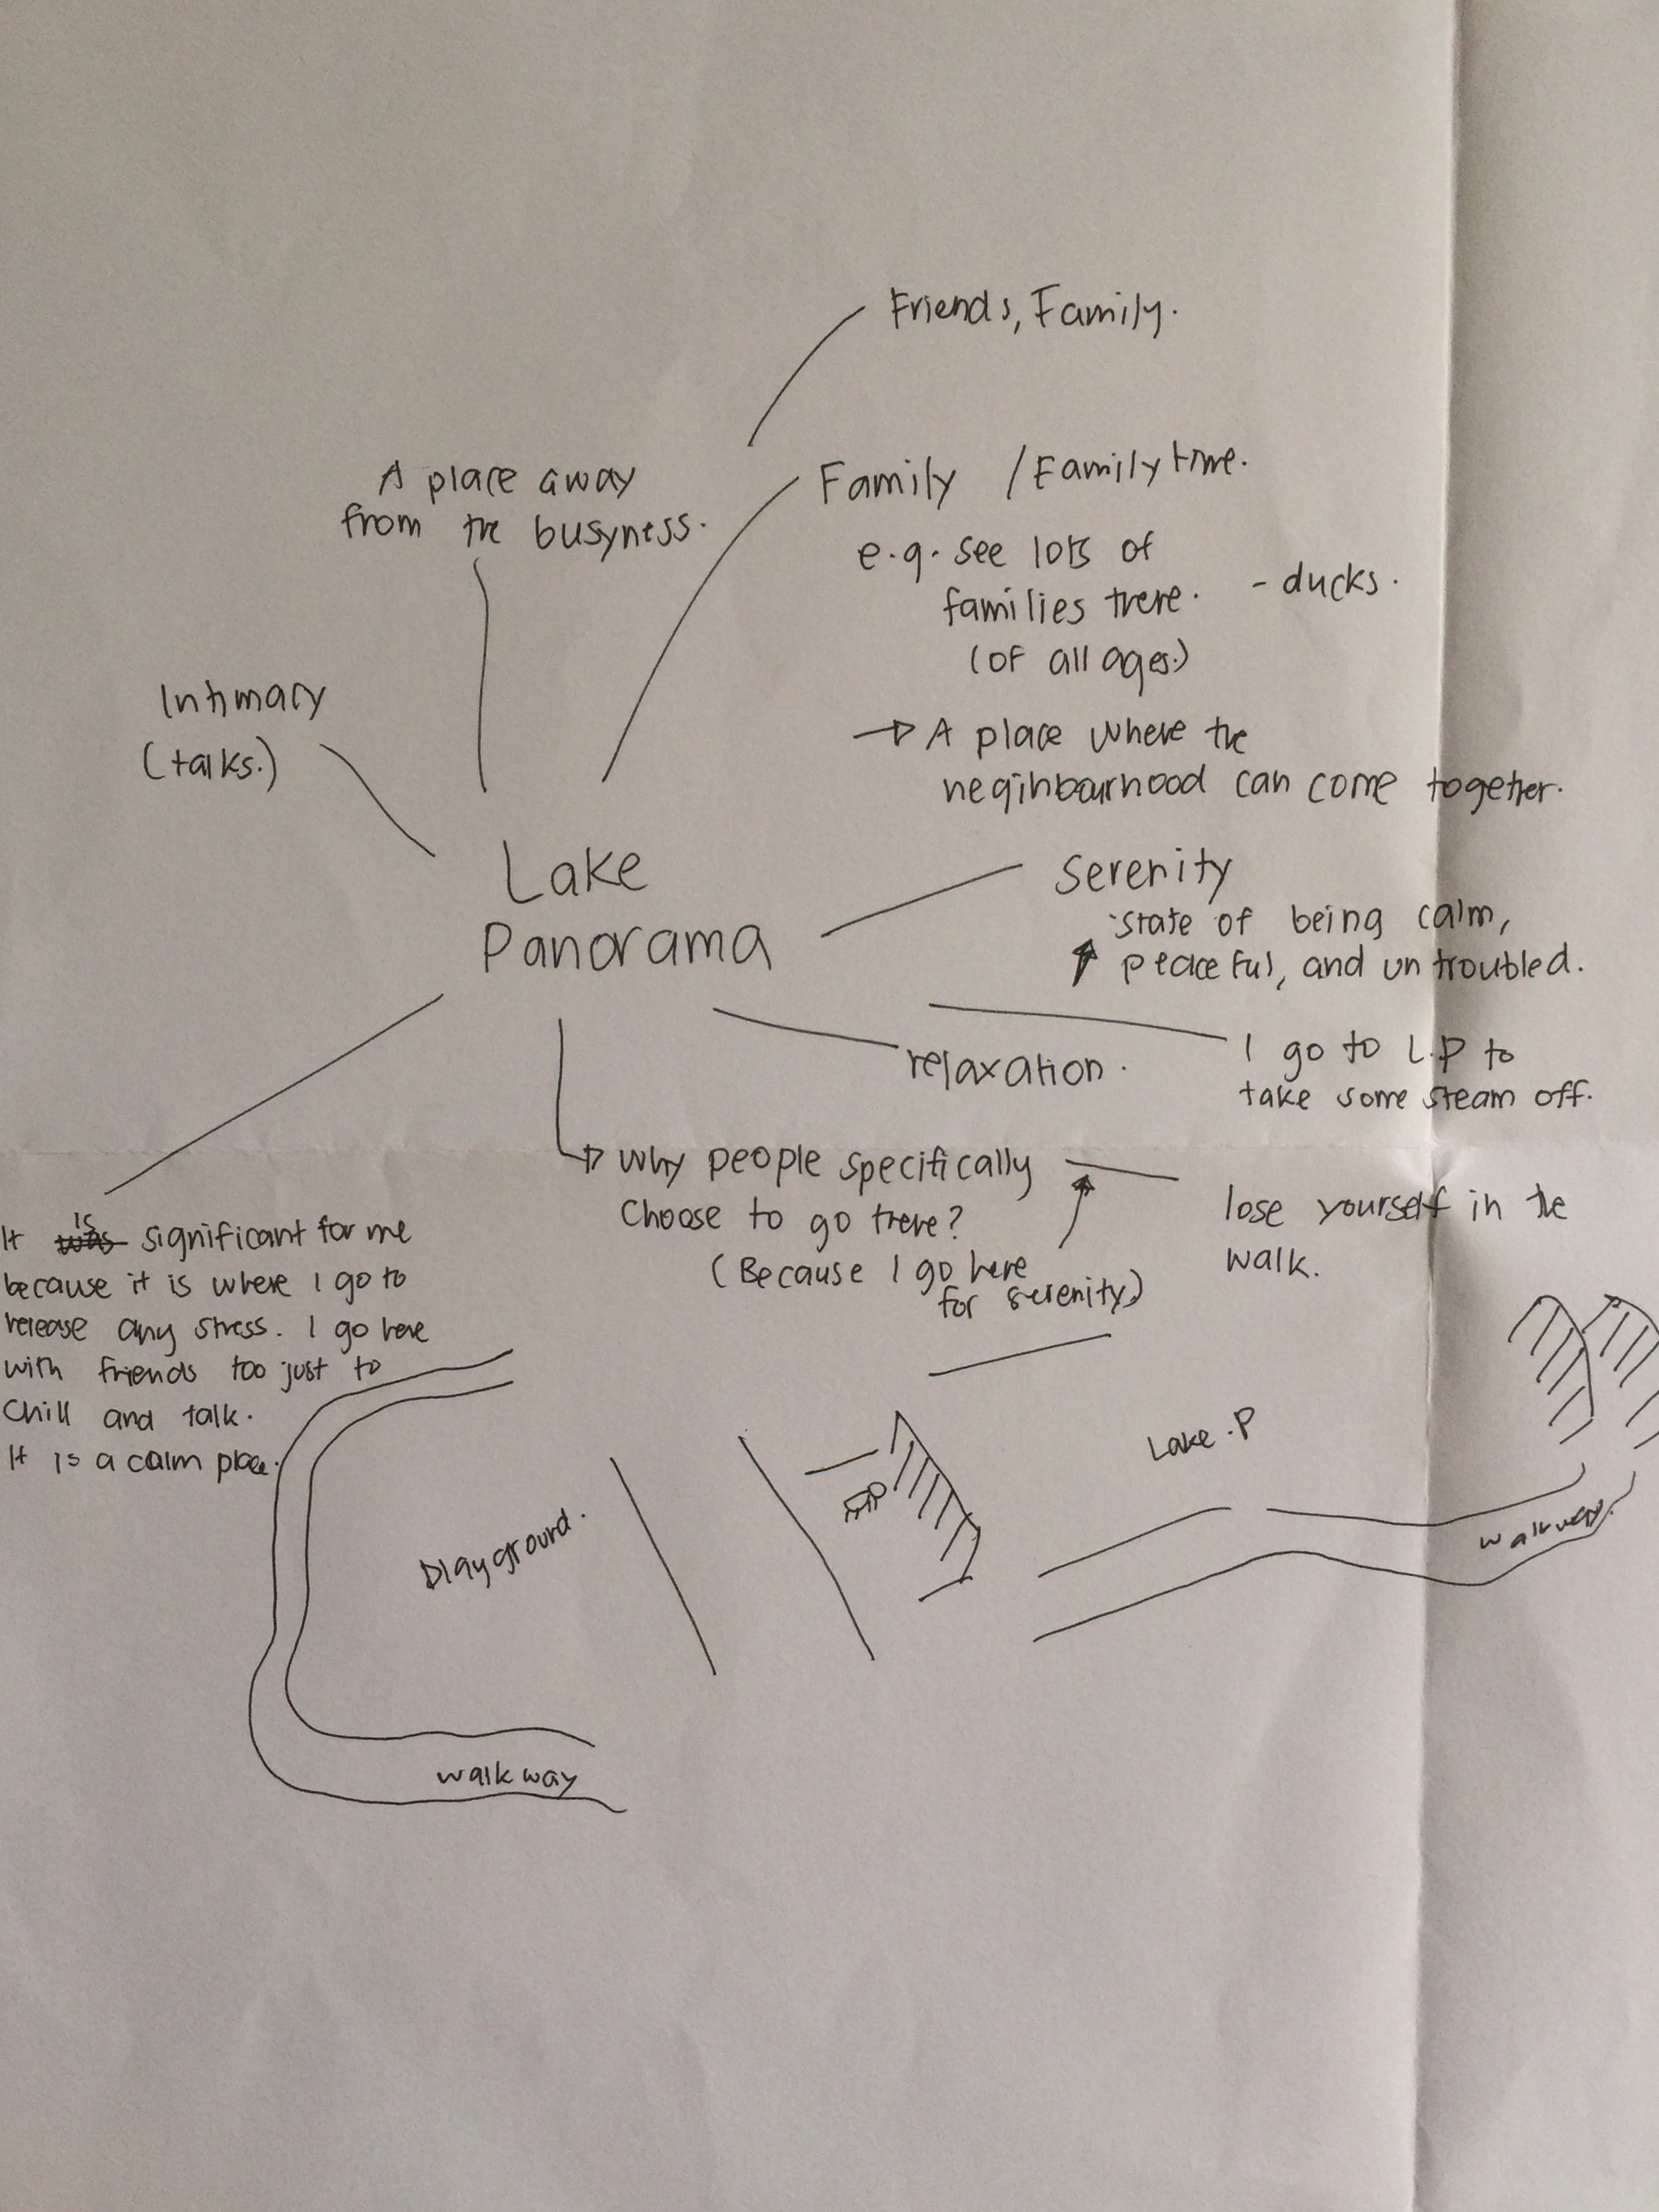 Friends, Family.
A place away
from the busyness.
Family / Family time.
e.g. see lots of
families there.
(of all ages.)
- ducks.
→ A place where the
neginhbourhood can come together.
Intimacy
(talks.)
Lake
Panorama
Serenity
state of being calm,
peaceful, and untroubled.
relaxation.
I go to L.P to
take some steam off.
Why people specifically
choose to go there?
(Because I go here
for serenity)
lose yourself in the
walk.
It was is significant for me
because it is where I go to
release any stress. I go here
with friends too just to
chill and talk.
It is a calm place.
Playground.
Lake.P
walkway.
walkway